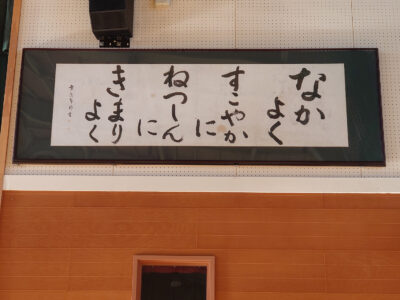 なかよく
すこやかに
ねっしんに
きまりよく